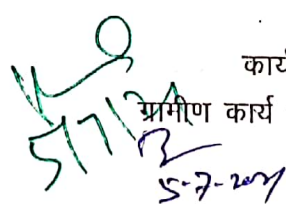 कार्य
ग्रामीण कार्य
5/7/21
5-7-2021